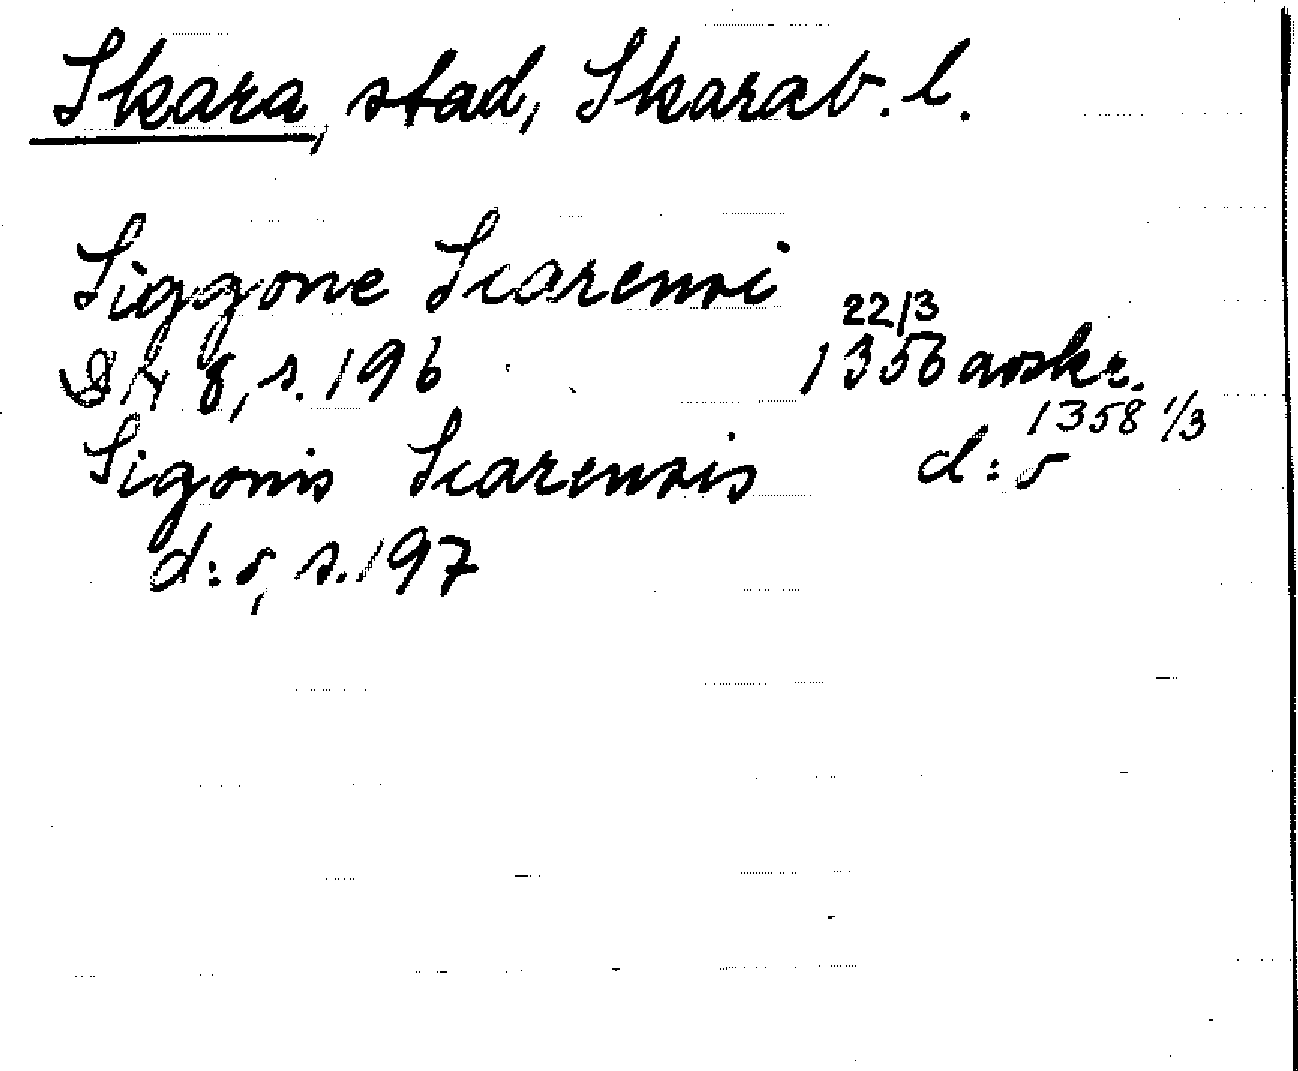 Skara, stad, Skarab. l.
Siggone Scarensi
22/3
8, s. 196 1356 avskr.
1358 1/3
Sigonis Scarensis d:o
d:o, s. 197